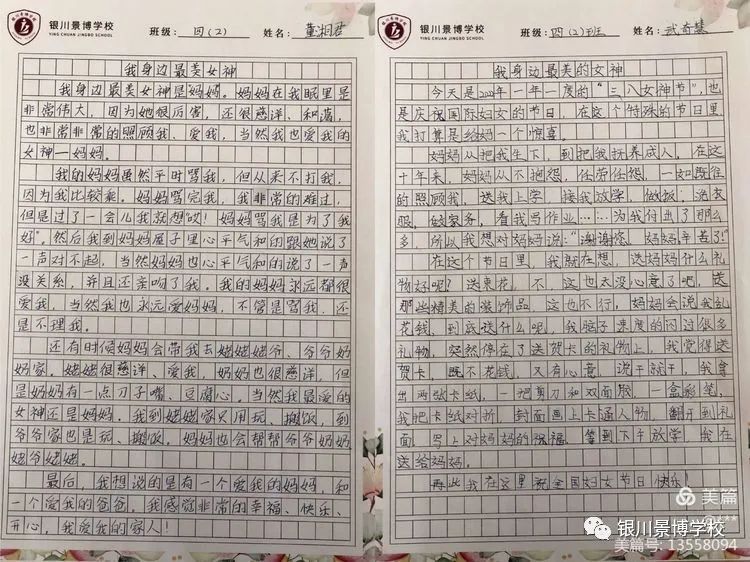 银川景博学校
YING CHUAN JINGBO SCHOOL
班级：四(2)
姓名：董湘君
我身边最美女神
我身边最美女神是妈妈。妈妈在我眼里是
非常伟大，因为她很厉害，还很慈洋、和蔼，
也非常非常的照顾我、爱我，当然我也爱我的
女神—妈妈。
我的妈妈虽然平时骂我，但从来不打我，
因为我比较乖。妈妈骂完我，我非常的难过，
但是过了一会儿我就想“哎！妈妈骂我是为了我
好”。然后我到妈妈屋子里心平气和的跟她说了
一声对不起，当然妈妈也心平气和的说了一声
没关系，并且还亲吻了我。我的妈妈永远都很
爱我，当然我也永远爱妈妈，不管是骂我，还
是不理我。
还有时候妈妈会带我去姥姥姥爷、爷爷奶
奶家。姥姥很慈洋、爱我，奶奶也很慈洋，但
是奶奶有一点刀子嘴、豆腐心。当然我最爱的
女神还是妈妈。我到姥姥家只用玩、搬饭，到
爷爷家也是玩、搬饭。妈妈也会帮帮爷爷奶奶
姥爷姥姥。
最后，我想说的是有一个爱我的妈妈，和
一个爱我的爸爸，我感觉非常的幸福、快乐、
开心，我爱我的家人！
银川景博学校
YING CHUAN JINGBO SCHOOL
班级：四(2)班
姓名：武奇慧
我身边最美的女神
今天是2022年一年一度的“三八女神节”，也
是庆祝国际妇女的节日，在这个特殊的节日里
我打算是给妈一个惊喜。
妈妈从把我生下，到把我抚养成人，在这
十年来，妈妈从不抱怨，任劳任怨，一如既往
的照顾我，送我上学，接我放学，做饭，洗衣
服，做家务，看我写作业……为我付出了那么
多，所以我想对妈妈说：“谢谢您，妈妈，辛苦了！”
在这个节日里，我就在想，送妈妈什么礼
物好呢？送束花，不，这也太没心意了吧，送
那些精美的装饰品，这也不行，妈妈会说我乱
花钱，到底送什么呢，我脑子速度的闪过很多
礼物，突然停在了送贺卡的礼物上，我觉得送
贺卡，既不花钱，又有心意，说干就干，我拿
出两张卡纸，一把剪刀和双面胶，一盒彩笔，
我把卡纸对折，封面画上卡通人物，翻开到礼
面，写上对妈妈的祝福，等到下午放学，我在
送给妈妈。
再此我在这里祝全国妇女节日快乐！
美篇
银川景博学校
美篇号：13558094